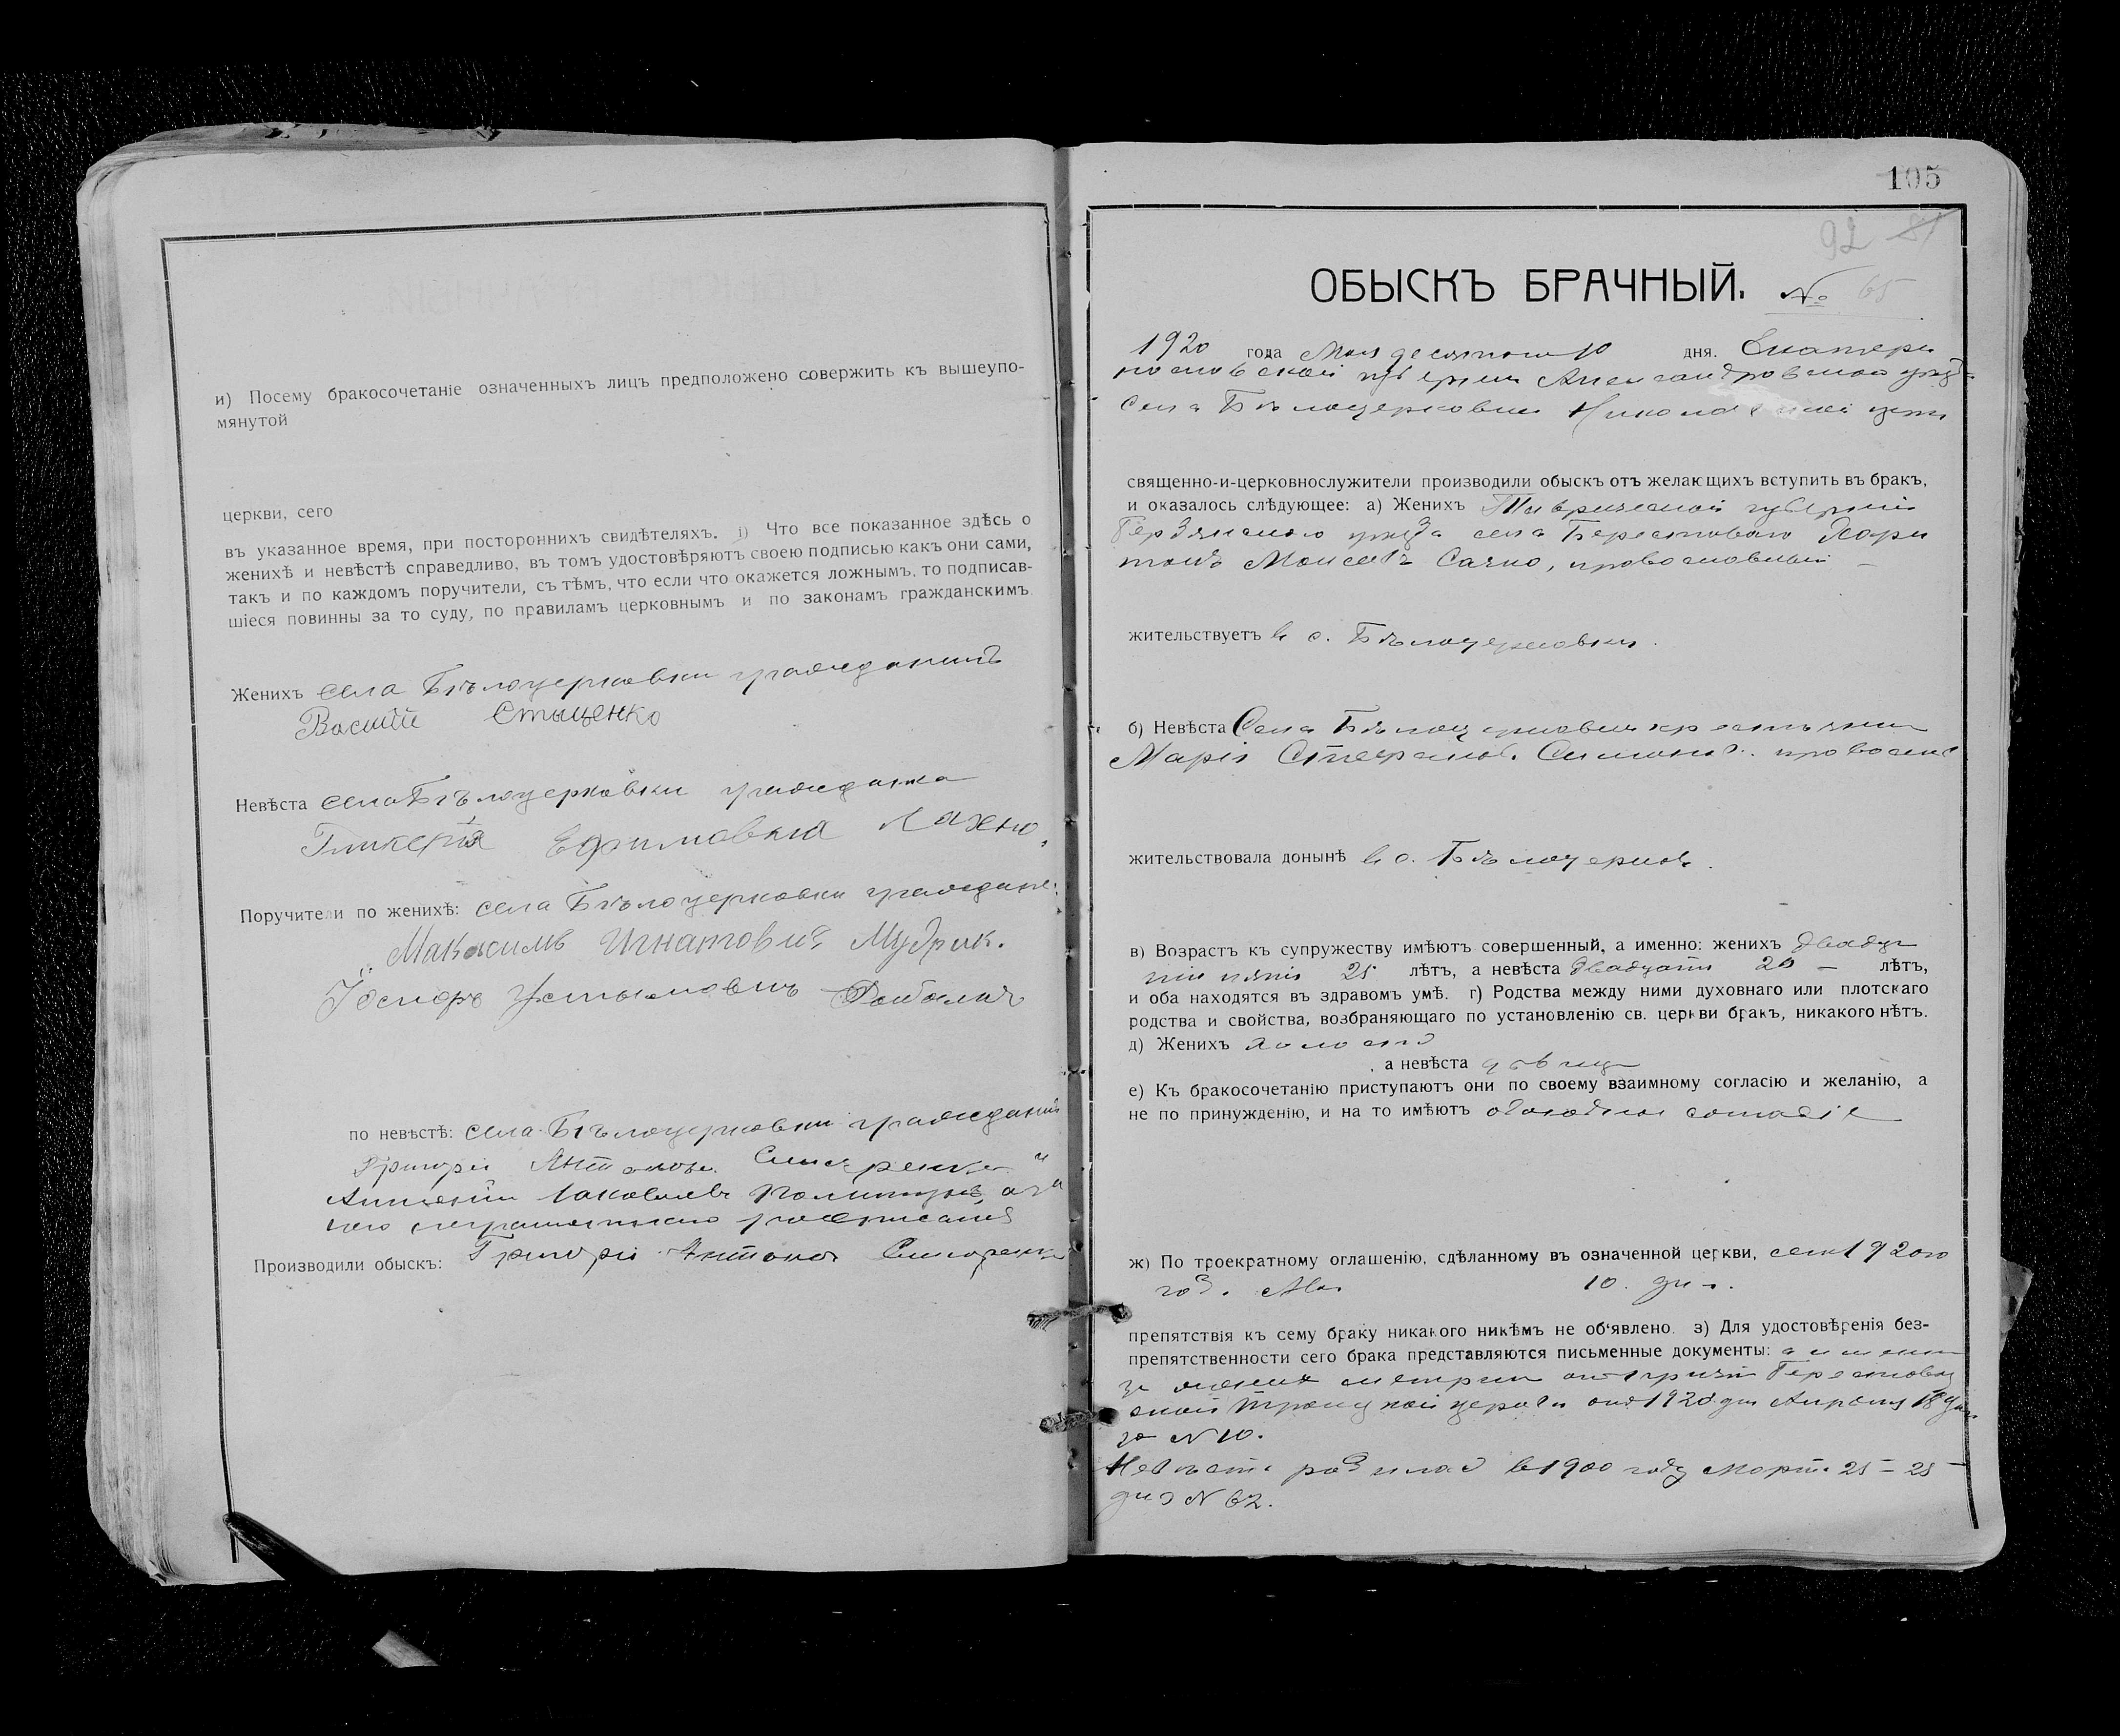 и) Посему бракосочетаніе означенныхъ лицъ предположено совержить къ вышеупо-
мянутой
церкви, сего
въ указанное время, при постороннихъ свидѣтеляхъ. i) Что все показанное здѣсь о
женихѣ и невѣстѣ справедливо, въ томъ удостовѣряютъ своею подписью какъ они сами,
такъ и по каждомъ поручители, съ тѣмъ, что если что окажется ложнымъ, то подписав-
шіеся повинны за то суду, по правиламъ церковнымъ и по законамъ гражданскимъ.
Женихъ села Бѣлоцерковки гражданинъ
Василій Стыценко
Невѣста села Бѣлоцерковки гражданка
Гликерія Ефимовна Лахно,
Поручители по женихѣ: села Бѣлоцерковки граждане:
Максимъ Игнатовичъ Мудрик.
Устымовичъ
по невѣстѣ: села Бѣлоцерковки гражданинъ
Григорій Антонов. и
Яковлевъ
Производили обыскъ: Григорій Антонов
105
92 81
ОБЫСКЪ БРАЧНЫЙ. № 65
1920 года Мая десятого 10 дня. Екатери
нославской губерніи Александровскаго уѣзд
села Бѣлоцерковки Николаевской церк
священно-и-церковнослужители производили обыскъ отъ желающихъ вступить въ бракъ,
и оказалось слѣдующее: а) Женихъ Таврической губерніи
Бердянскаго уѣзда села Берестоваго Хари
тонъ Моисеевъ Сачко, православный
жительствуетъ в с. Бѣлоцерковки.
б) Невѣста Села Бѣлоцерковки крестьянка
Марія Стефанов. православ
жительствовала донынѣ в с. Бѣлоцерковкѣ.
в) Возрастъ къ супружеству имѣютъ совершенный, а именно: женихъ двадца
ти пяти 25 лѣтъ, а невѣста двадцати 20 — лѣтъ,
и оба находятся въ здравомъ умѣ. г) Родства между ними духовнаго или плотскаго
родства и свойства, возбраняющаго по установленію св. церкви бракъ, никакого нѣтъ.
д) Женихъ холостъ
, а невѣста дѣвица
е) Къ бракосочетанію приступаютъ они по своему взаимному согласію и желанію, а
не по принужденію, и на то имѣютъ обоюдное согласіе
ж) По троекратному оглашенію, сдѣланному въ означенной церкви, сего 1920го
год. Мая 10. дня.
препятствія къ сему браку никакого никѣмъ не об'явлено. з) Для удостовѣренія без-
препятственности сего брака представляются письменные документы: а именно
Берестовец
кой Троицкой церкви от 1920 дня Апрѣля 18 дня
за № 10.
Невѣста родилась в 1900 году Марта 25 - 25
дня № 62.